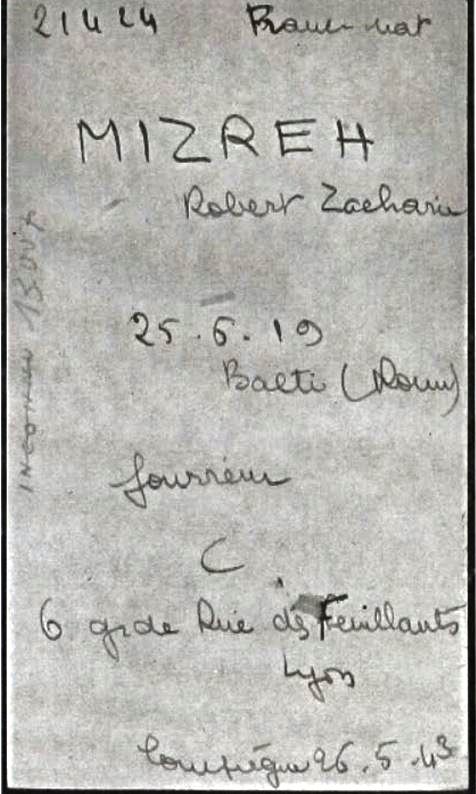 21424 Franc-nat
MIZREH
Robert Zacharie
25.6.19
Balti (Roum)
fourreur
C
6 grde Rue des Feuillants
Lyon
Compiègne 26.5.43
INCONNU 13 OUT